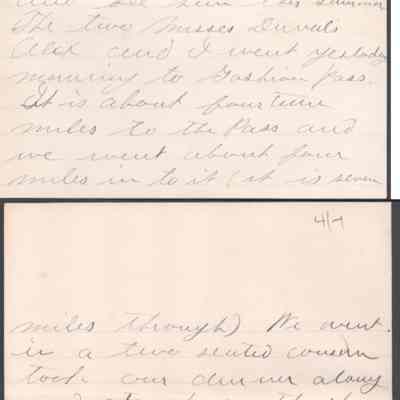 and see him this summer
The two Misses Duvals
Alex and I went yesterday
morning to Goshion Pass.
It is about fourteen
miles to the Pass and
we went about four
miles in to it (it is seven
4/7
miles through) We went.
in a two seated concern
took our dinner along